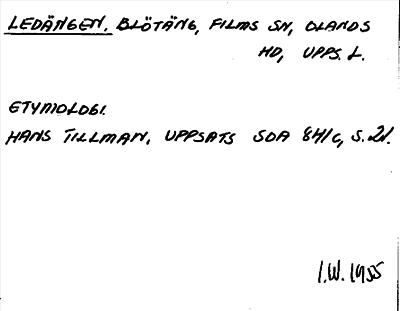 LEDÄNGEN. BLÖTÄNG, FILMS SN, OLANDS
HD, UPPS. L.
ETYMOLOGI.
HANS TILLMAN, UPPSATS SOA 841c, S. 21.
I.W. 1955